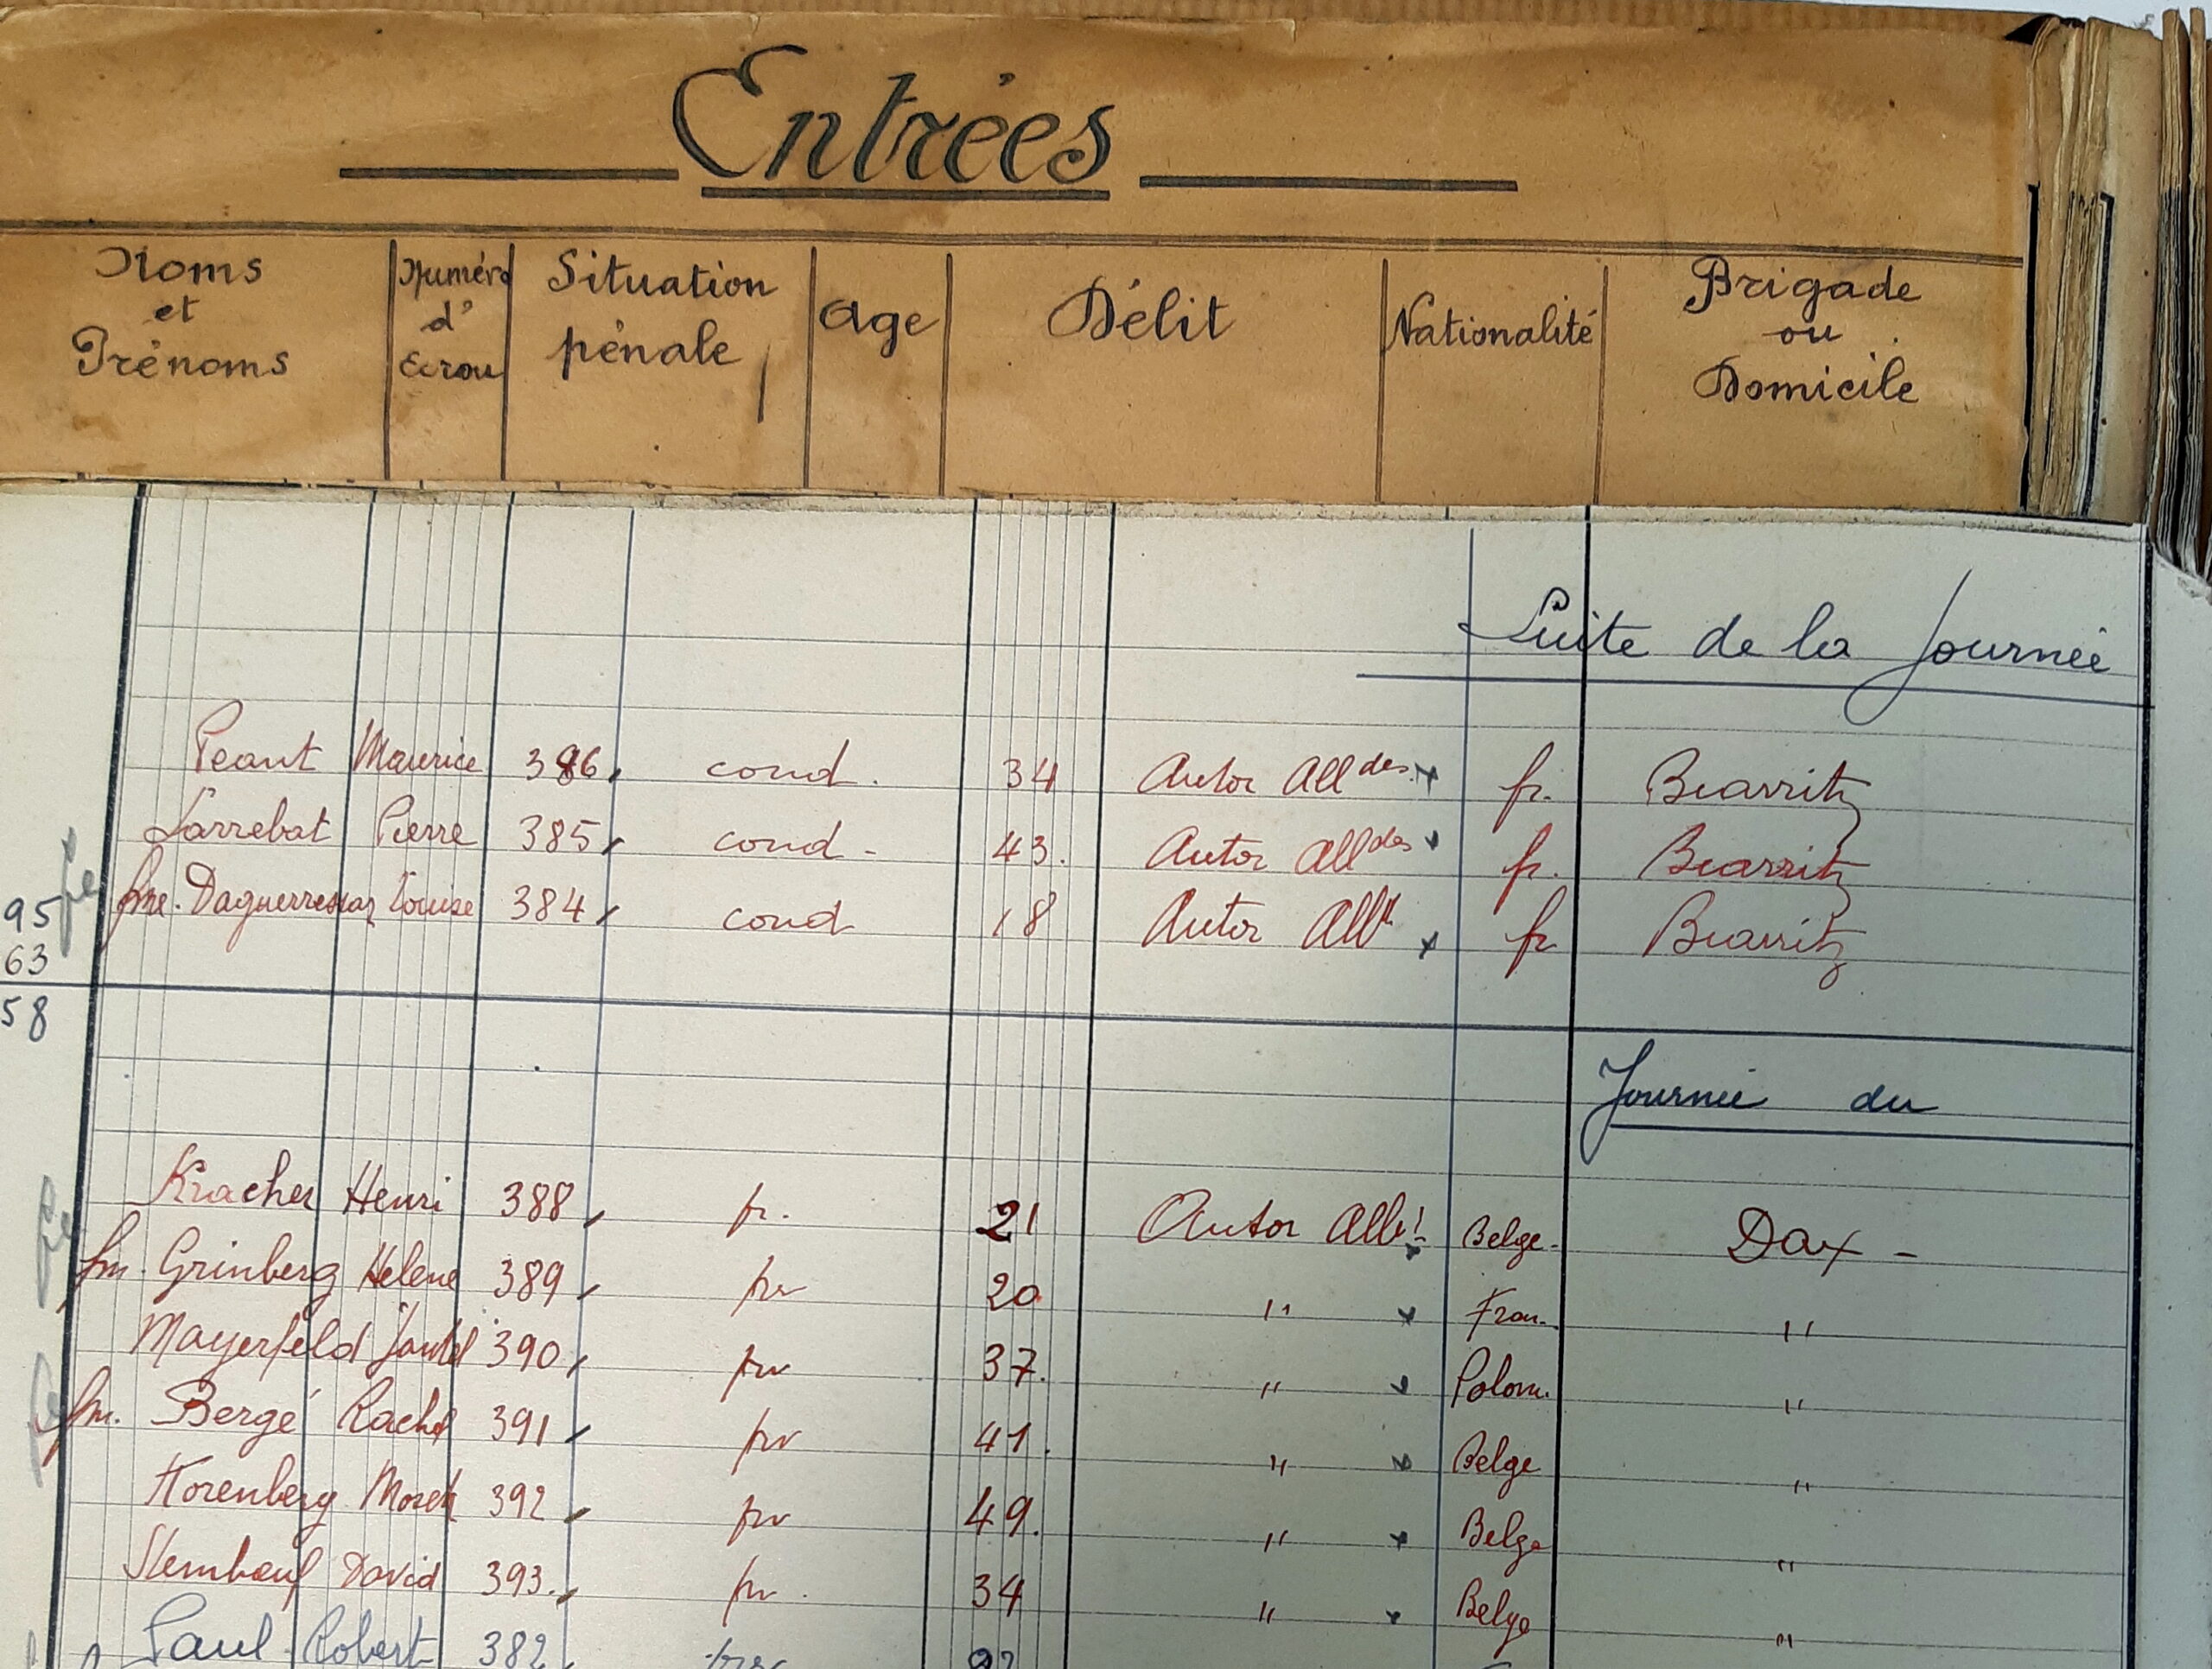 Entrées
Noms et Prénoms
Numéro d' Ecrou
Situation pénale
Age
Délit
Nationalité
Brigade ou Domicile
Suite de la Journée
Peant Maurice 386 cond. 34 Autor All des. fr. Biarritz
Larrebat Pierre 385 cond - 43. Autor All des fr. Biarritz
95 fme. Louise 384 cond 18 Autor fr Biarritz
63
58
Journée du
Kracher Henri 388 pr. 21 Autor Belge - Dax -
fm. Grinberg Helene 389 pr 20 " Fran. "
Mayerfeld 390 prv 37. " Polon. "
fm. Bergé Rachel 391 prv 41. " Belge "
Korenberg Mosek 392 prv 49. " Belge "
David 393. prv. 34 " Belge "
Paul Robert 382